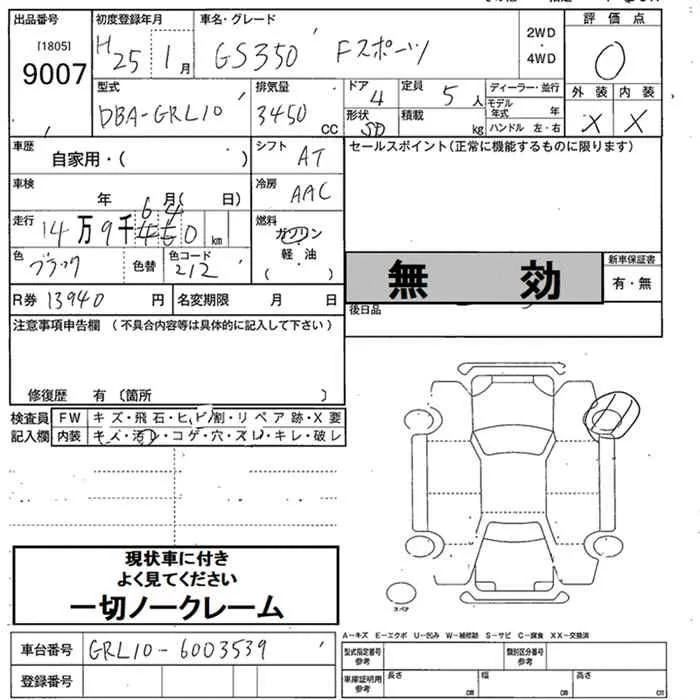 出品番号 初度登録年月 車名・グレード 2WD・4WD 評価点
[1805]
9007
H25 1月 GS350 Fスポーツ 0
型式 排気量 ドア 定員 ディーラー・並行 外装 内装
DBA-GRL10 3450cc 4 5人 モデル年式 年
形状 SD 積載 kg ハンドル 左・右 X X
車歴 自家用・( ) シフト AT セールスポイント(正常に機能するものに限ります)
車検 年 月( 日) 冷房 AAC
走行 14万9千 km 燃料 ガソリン・軽油 ( )
色 ブラック 色替 色コード 212
無効 新車保証書 有・無
R券 13940円 名変期限 月 日 後日品
注意事項申告欄 (不具合内容等は具体的に記入して下さい)
修復歴 有 (箇所 )
検査員 FW キズ・飛石・ヒビ割・リペア跡・X要
記入欄 内装 キズ・汚レ・コゲ・穴・スレ・キレ・破レ
現状車に付き
よく見てください
一切ノークレーム
スペア
A-キズ E-エクボ U-凹み W-補修跡 S-サビ C-腐食 XX-交換済
車台番号 GRL10-6003539
型式指定番号 参考 類別区分番号 参考
登録番号
車庫証明用 参考 長さ cm 幅 cm 高さ cm